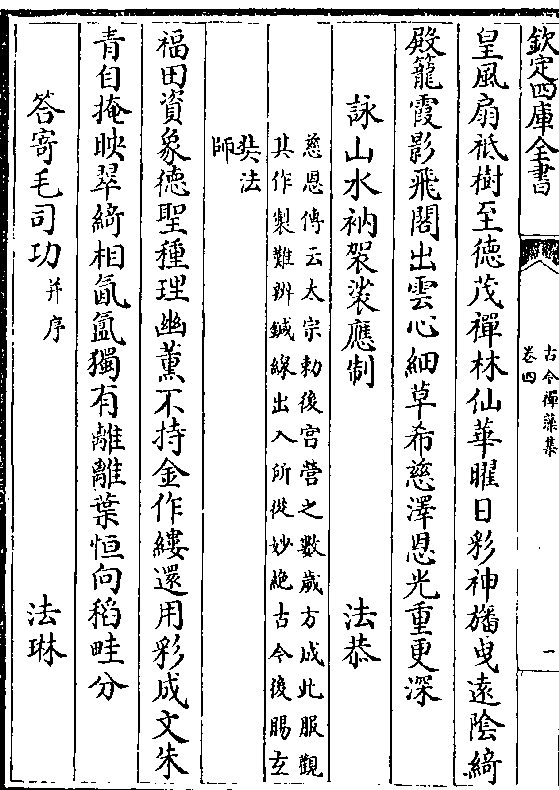 欽定四庫全書
古今禪藻集
卷四
一
皇風扇祇樹至德茂禪林仙華曜日彩神旛曳遠陰綺
殿籠霞影飛閣出雲心細草希慈澤恩光重更深
詠山水衲袈裟應制
法恭
慈恩傳云太宗勅後宫營之數歲方成此服觀
其作製難辨鍼線出入所從妙絶古今後賜玄
奘法
師
福田資象德聖種理幽薰不持金作縷還用彩成文朱
青自掩映翠綺相氤氲獨有離離葉恒向稻畦分
答寄毛司功
并序
法琳